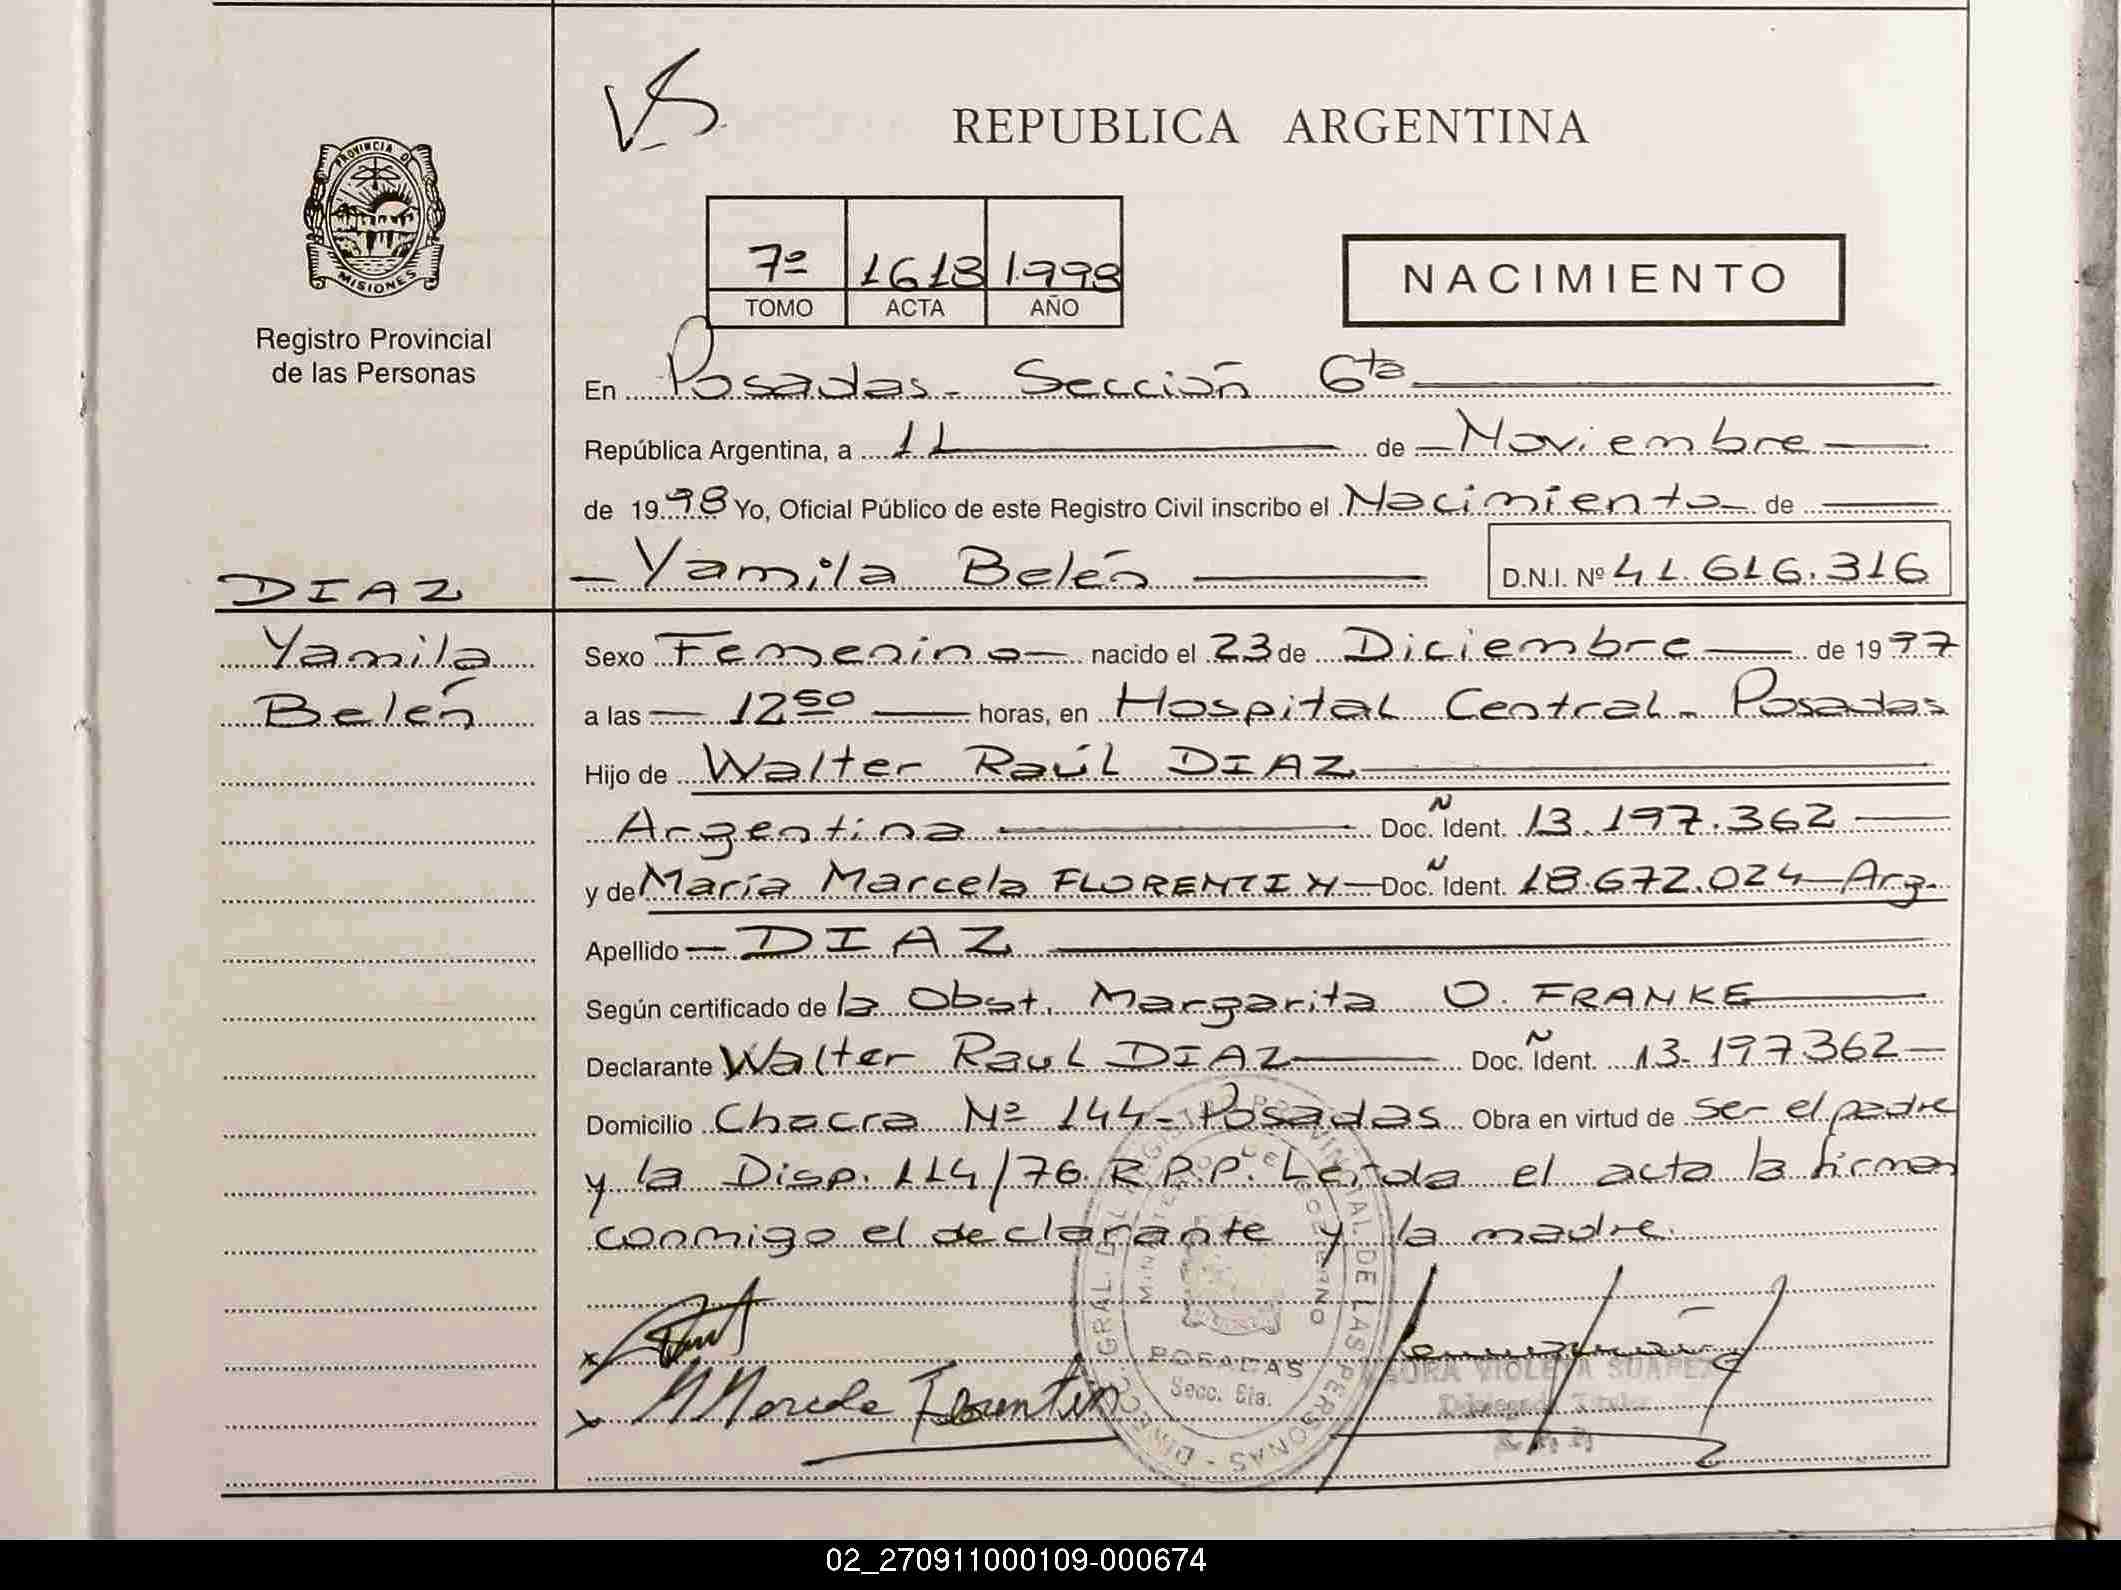 VS
REPUBLICA ARGENTINA
PROVINCIA D
MISIONES
Registro Provincial
de las Personas
7º 1618 1.998
TOMO ACTA AÑO
NACIMIENTO
En Posadas - Sección 6ta
República Argentina, a 11 de Noviembre
de 1998 Yo, Oficial Público de este Registro Civil inscribo el Nacimiento de
Yamila Belén D.N.I. Nº 41.616.316
DIAZ
Yamila
Belén
Sexo Femenino nacido el 23 de Diciembre de 1997
a las 12 50 horas, en Hospital Central - Posadas
Hijo de Walter Raúl DIAZ
Argentina Doc. Ñ Ident. 13.197.362
y de María Marcela FLORENTIN Doc. Ñ Ident. 18.672.024 - Arg.
Apellido DIAZ
Según certificado de la Obst. Margarita O. FRANKE
Declarante Walter Raul DIAZ Doc. Ñ Ident. 13.197.362
Domicilio Chacra Nº 144 - Posadas Obra en virtud de ser el padre
y la Disp. 114/76 R.P.P. Leída el acta la firman
conmigo el declarante y la madre.
x
x M Marcela Florentin
POSADAS
Secc. 6ta.
VIOLETA SUAREZ
Delegada Titular
R.P.P.
02_270911000109-000674